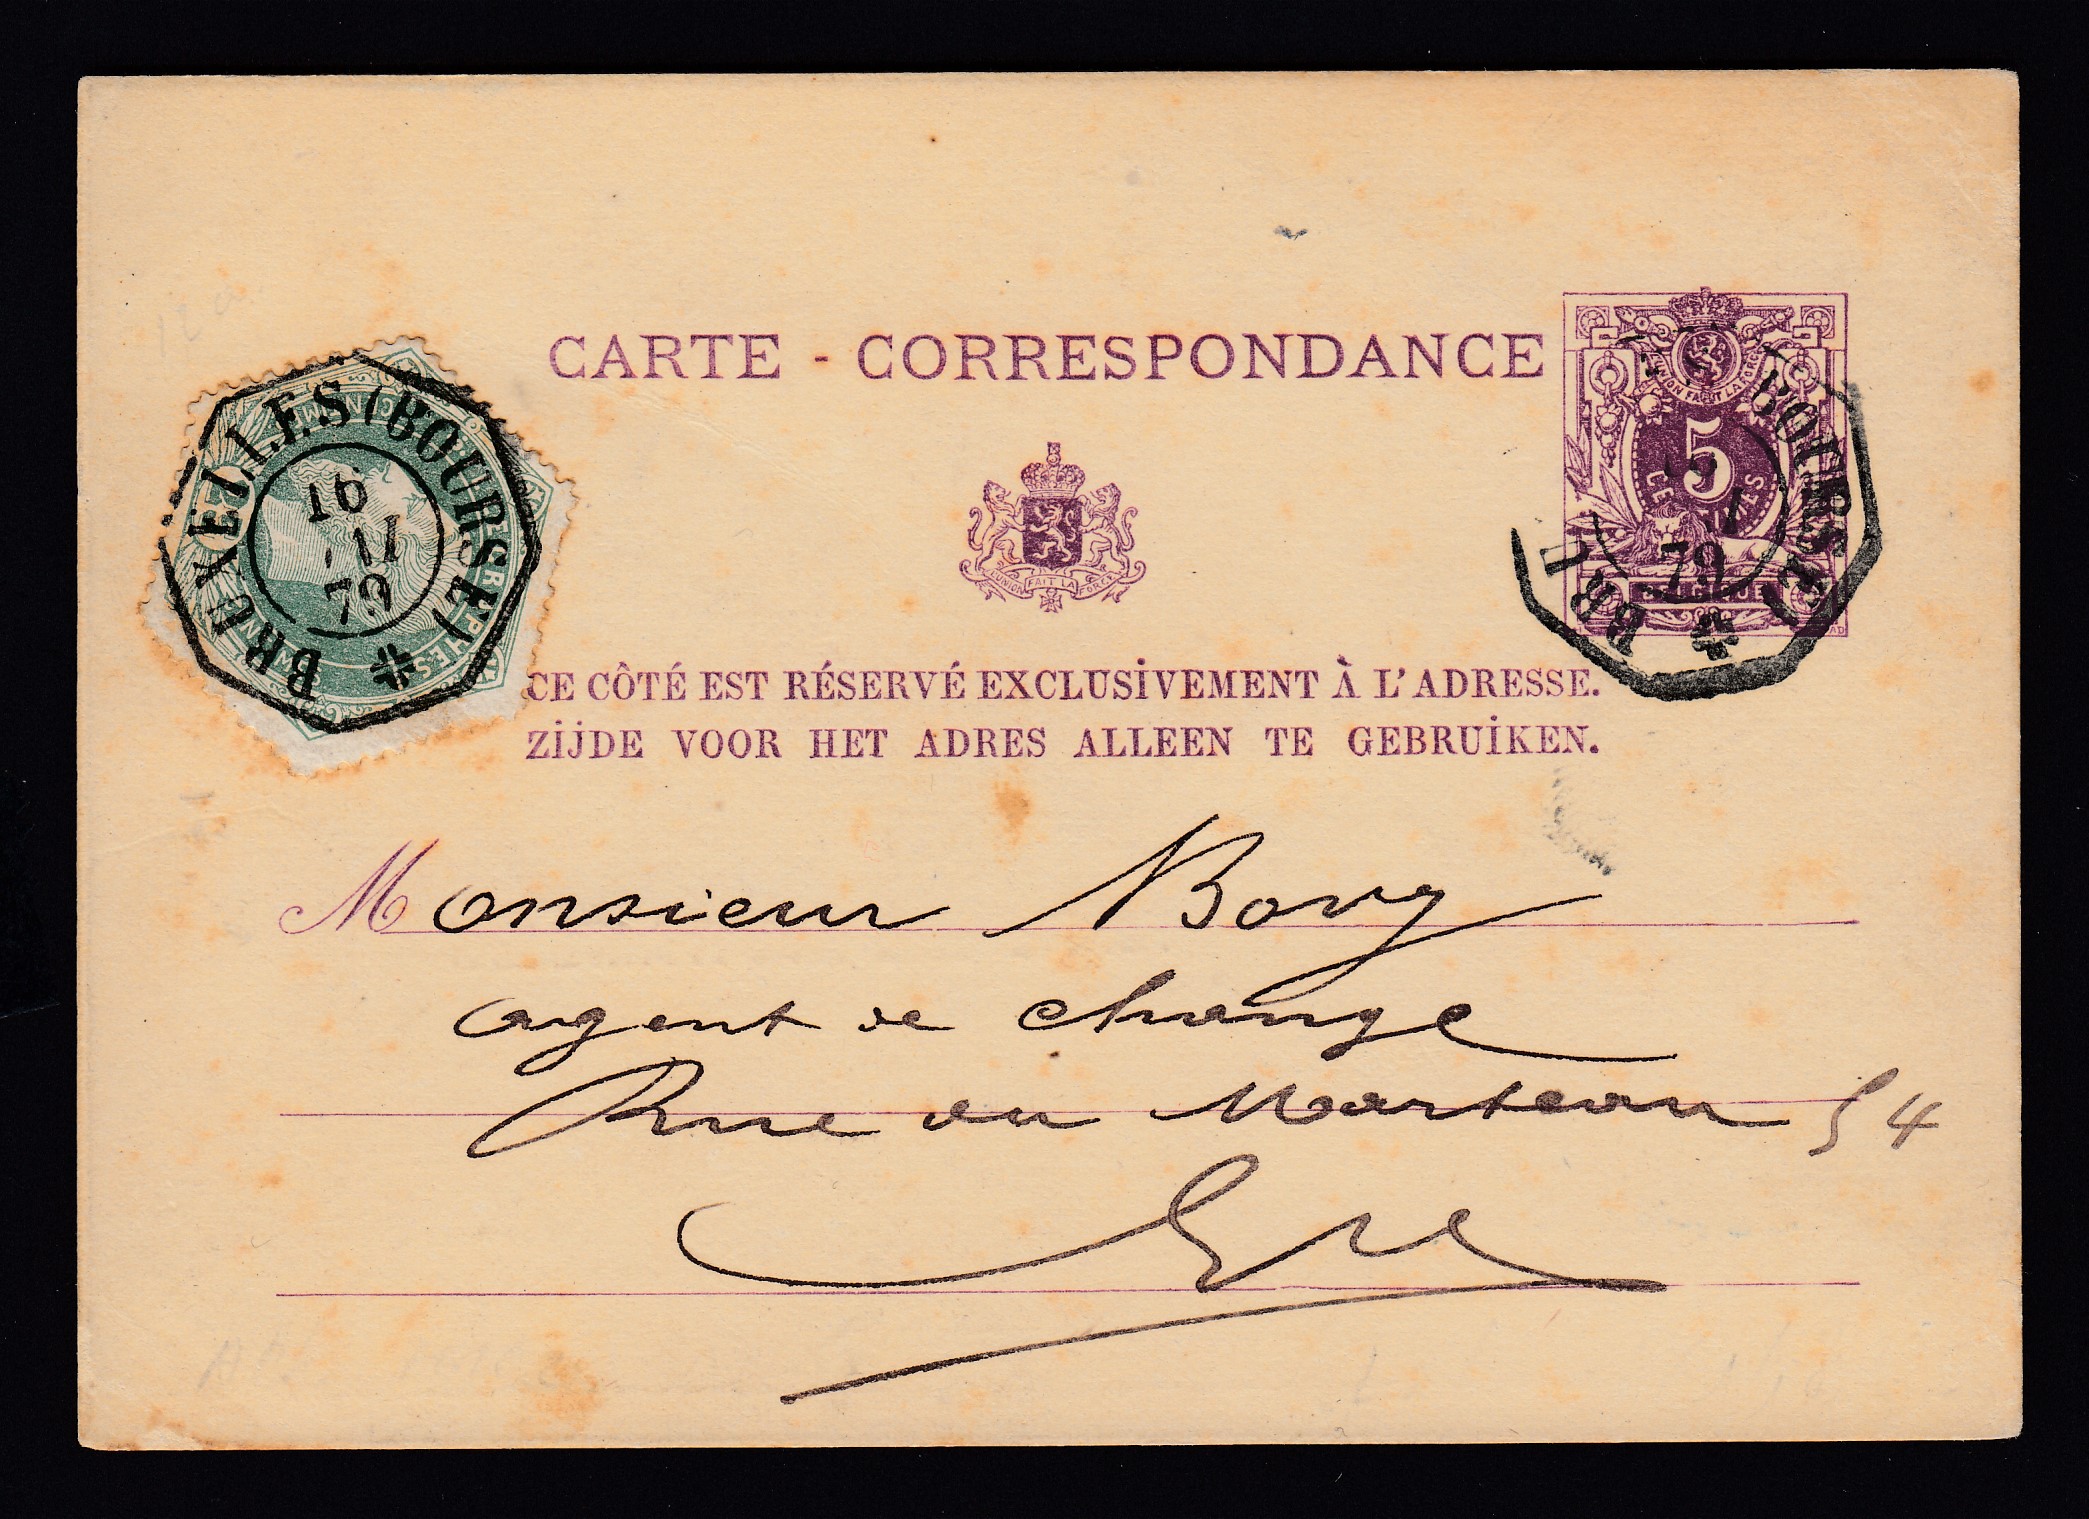 CARTE - CORRESPONDANCE
BRUXELLES (BOURSE)
16
79
5
BELGIQUE
BOURSE
79
L'UNION FAIT LA FORCE
CE CÔTÉ EST RÉSERVÉ EXCLUSIVEMENT À L'ADRESSE.
ZIJDE VOOR HET ADRES ALLEEN TE GEBRUIKEN.
Monsieur Bovy
agent de change
Rue du Marteau 54